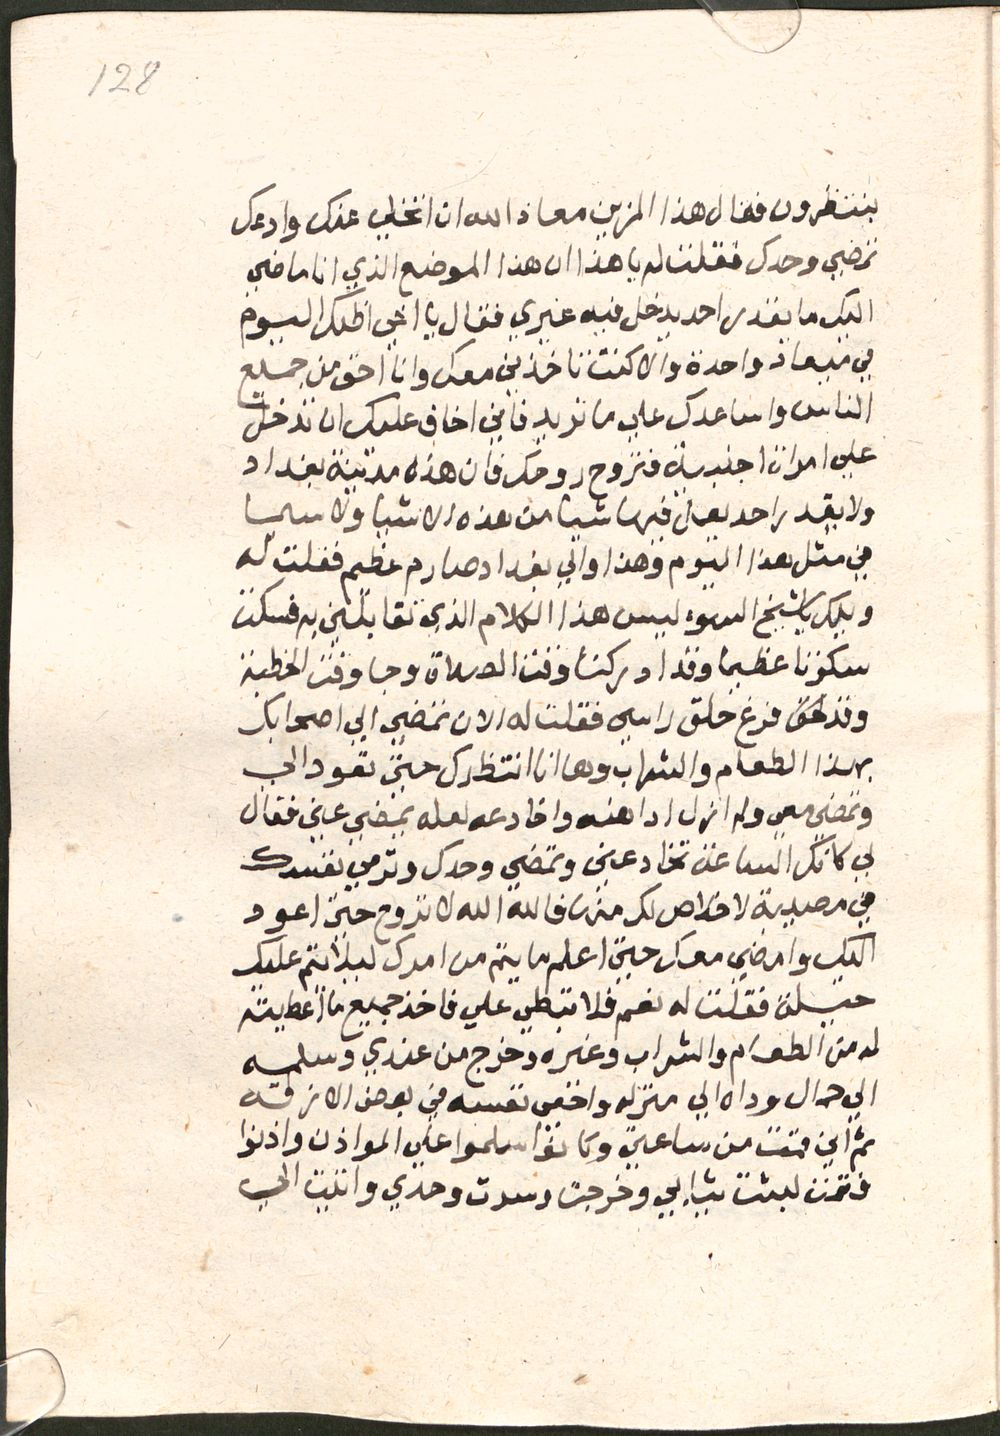 128
ينتظرون فقال هذا المزين معاذ الله ان اتخلي عنك وادعك
تمضي وحدك فقلت له يا هذا ان هذا الموضع الذي انا ماضي
اليك ما يقدر احد يدخل فيه غيري فقال يا اخي اظنك اليوم
في ميعاد واحدة والا كنت تاخذني معك وانا احق من جميع
الناس واساعدك علي ما تريد فاني اخاف عليك ان تدخل
علي امراة اجنبية فتروح روحك فان هذه مدينة بغداد
ولا يقدر احد يعمل فيها شيا من هذه الاشيا ولا سيما
في مثل هذا اليوم وهذا والي بغداد صارم عظيم فقلت له
ويلك يا شيخ السوء ليس هذا الكلام الذي تقابلني به فسكت
سكوتا عظيما وقد ادركنا وقت الصلاة وجا وقت الخطبة
وقد فرغ حلق راسي فقلت له الان تمضي الي اصحابك
بهذا الطعام والشراب وها انا انتظرك حتي تعود الي
وتمضي معي ولم ازل اداهنه واخادعه لعله يمضي عني فقال
لي كانك الساعة تخادعني وتمضي وحدك وترمي نفسك
في مصيبة لا خلاص لك منها فالله الله لا تروح حتي اعود
اليك وامضي معك حتي اعلم ما يتم من امرك ليلا يتم عليك
حيلة فقلت له نعم فلا تبطي علي فاخذ جميع ما اعطيته
له من الطعام والشراب وغيره وخرج من عندي وسلمه
الي حمال وداه الي منزله واخفي نفسه في بعض الازقه
ثم اني قمت من ساعتي وكانوا سلموا علي المواذن واذنوا
فقمت لبست ثيابي وخرجت وسرت وحدي واتيت الي